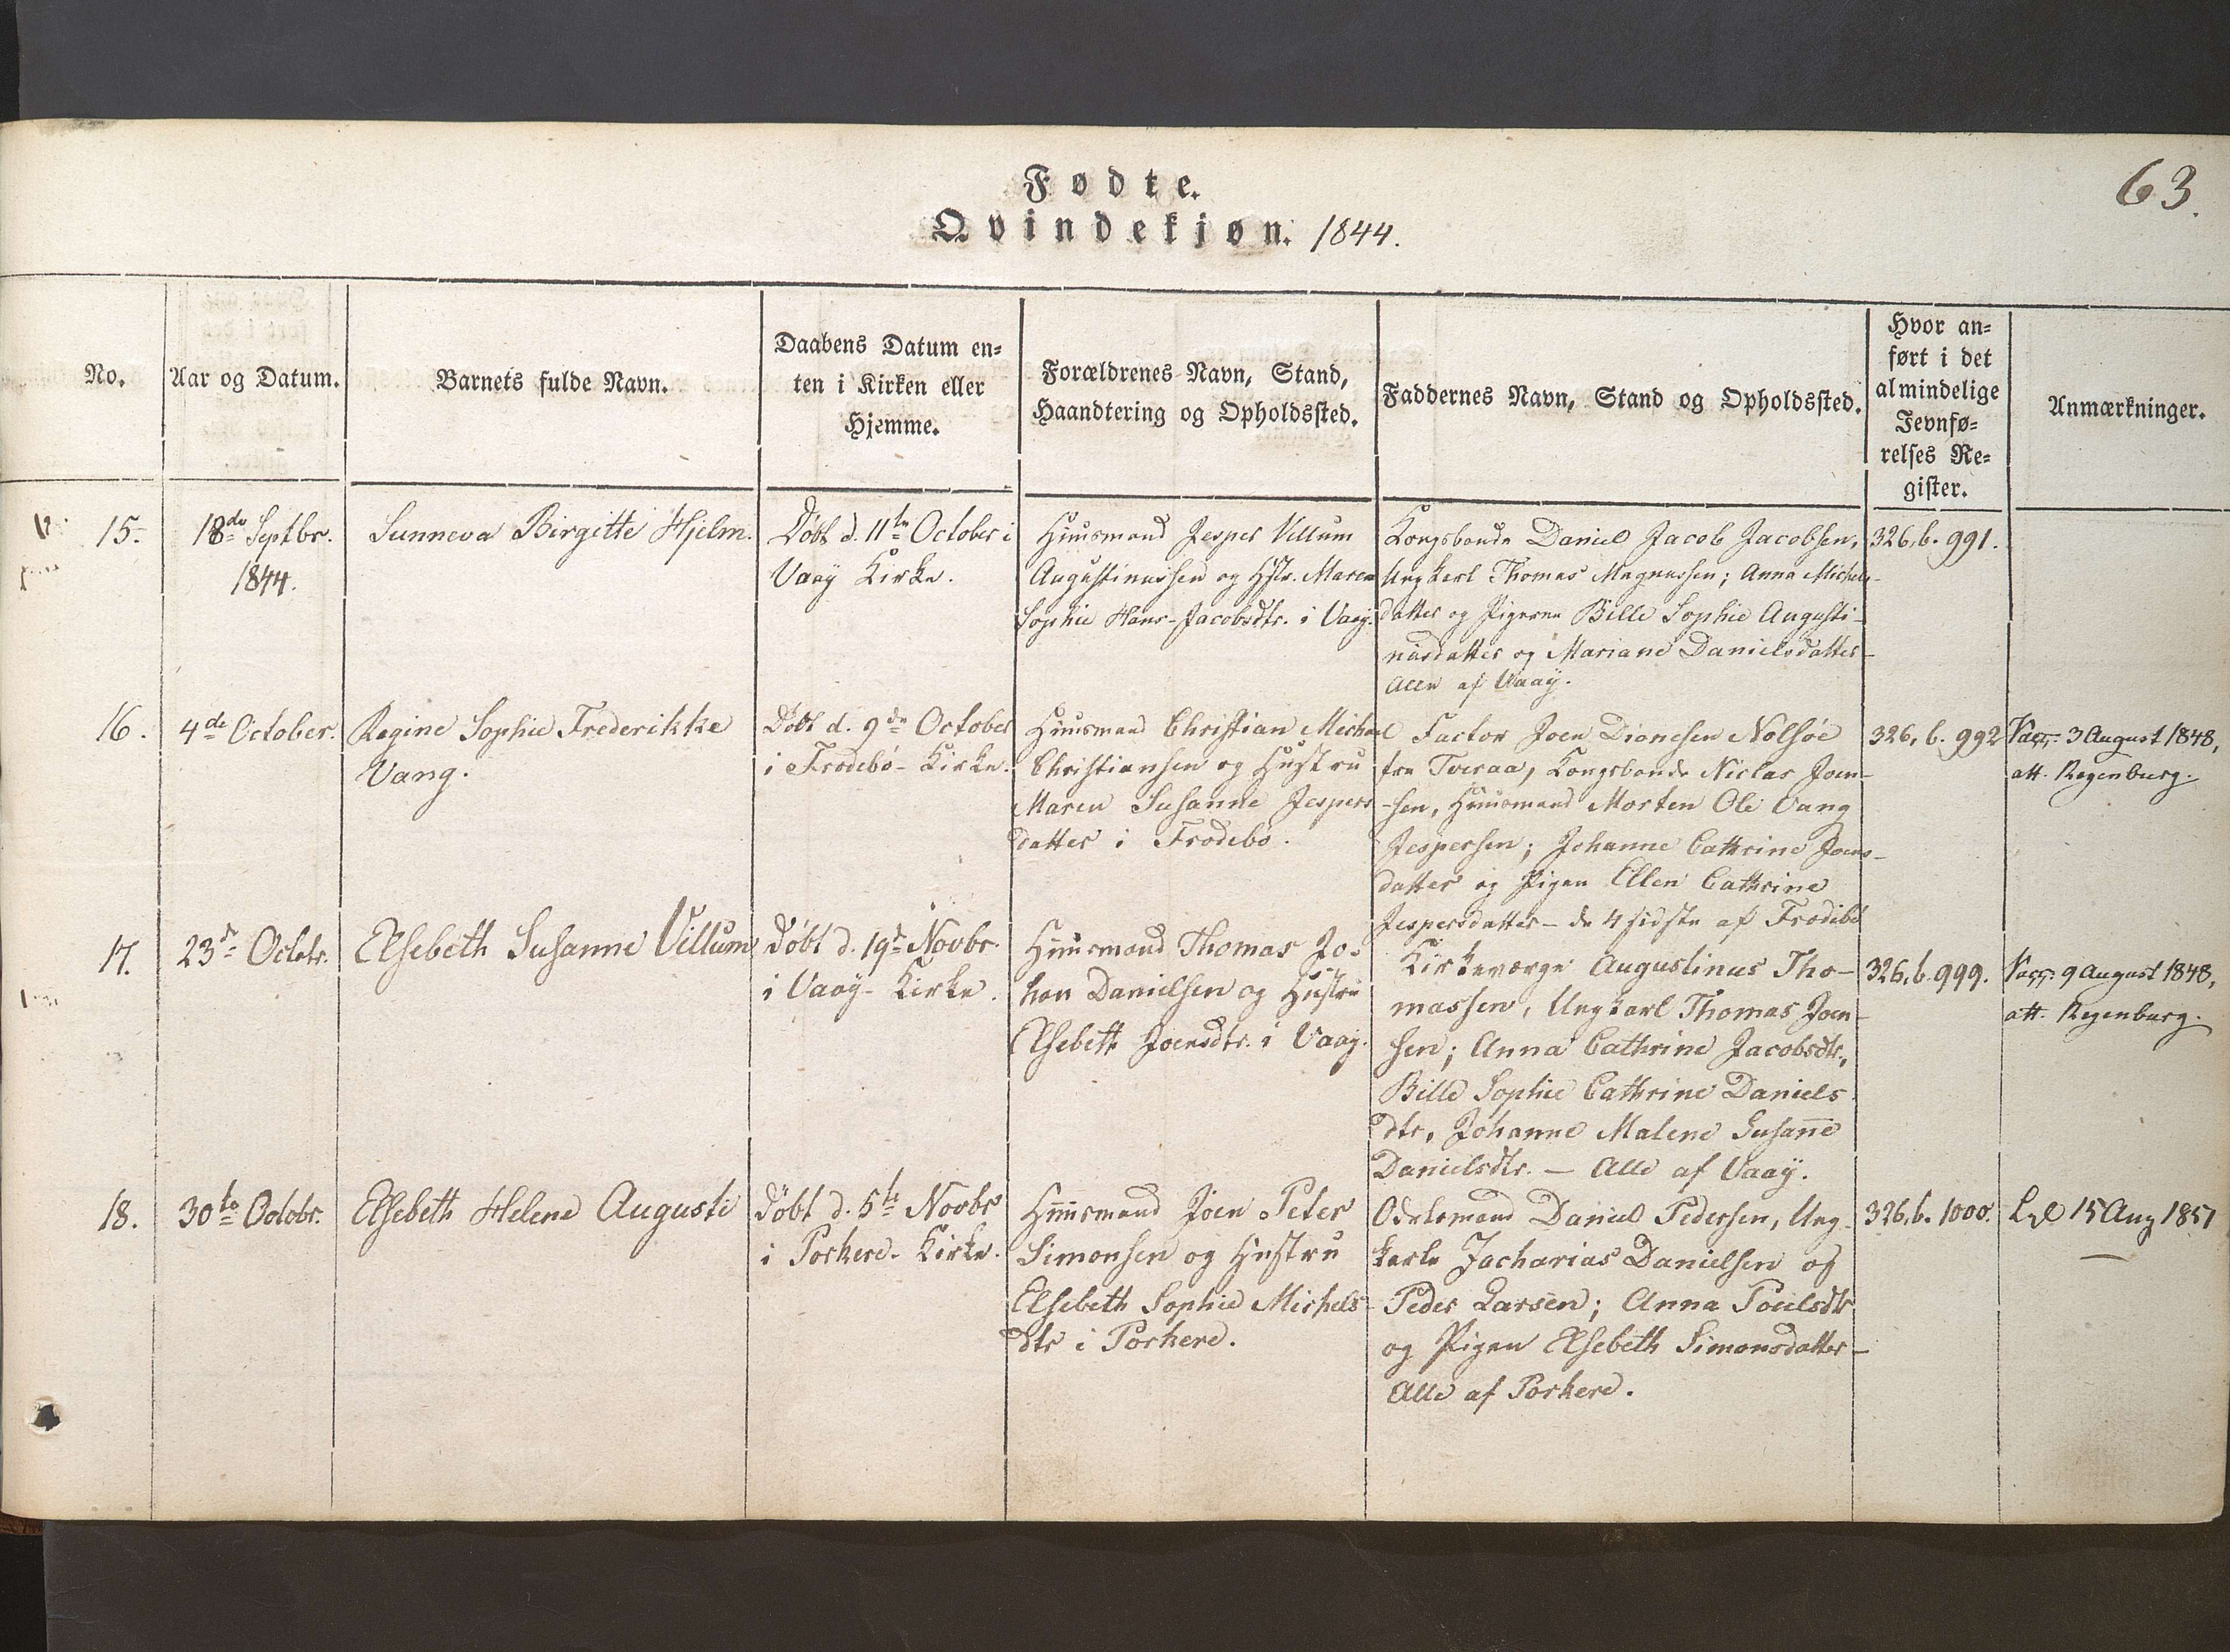 63.
Fødte.
Qvindekjøn. 1844.
No.
Aar og Datum.
Barnets fulde Navn.
Daabens Datum en=
ten i Kirken eller
Hjemme.
Forældrenes Navn, Stand,
Haandtering og Opholdssted.
Faddernes Navn, Stand og Opholdssted.
Hvor an=
ført i det
almindelige
Jevnfø=
relses Re=
gister.
Anmærkninger.
15.
18de Septbr.
1844.
Sunneva Birgitte Hjelm.
Döbt d. 11te October i
Vaaÿ Kirke.
Huusmand Jesper Villum
Augustinussen og Hstr. Maren
Sophie Hans-Jacobsdtr. i Vaaÿ.
Kongsbonde Daniel Jacob Jacobsen,
Ungkarl Thomas Magnussen; Anna Michels-
datter og Pigerne Bille Sophie Augusti-
nusdatter og Mariane Danielsdatter-
Alle af Vaaÿ.
326, b. 991.
16.
4de October.
Regine Sophie Frederikke
Vang.
Döbt d. 9de October
i Frodebö- Kirke.
Huusmand Christian Michael
Christiansen og Hustru
Maren Susanne Jespers-
datter i Frodebö.
Factor Joen Dionesen Nolsöe
fra Tveraa, Kongsbonde Niclas Joen-
-sen, Huusmand Morten Ole Vang
Jespersen; Johanne Cathrine Joens-
datter og Pigen Ellen Cathrine
Jespersdatter- de 4 sidste af Frodebö
326, b. 992
Vacc. 3 August 1848,
att. Regenburg.
17.
23de Octobr.
Elsebeth Susanne Villum
Döbt d. 19de Novbr.
i Vaaÿ- Kirke.
Huusmand Thomas Jo-
han Danielsen og Hustru
Elsebeth Joensdtr. i Vaaÿ.
Kirkeværge Augustinus Tho-
massen, Ungkarl Thomas Joen-
sen; Anna Cathrine Jacobsdtr.,
Bille Sophie Cathrine Daniels
dtr, Johanne Malene Susanne
Danielsdtr. - Alle af Vaaÿ.
326, b. 999.
Vacc. 9 August 1848,
att. Regenburg.
18.
30te Octobr.
Elsebeth Helene Auguste
Döbt d. 5te Novbr
i Porkere- Kirke.
Huusmand Joen Peter
Simonsen og Hustru
Elsebeth Sophie Michels-
dtr i Porkere.
Odelsmand Daniel Pedersen, Ung-
karle Zacharias Danielsen og
Peder Larsen; Anna Poulsdtr
og Pigen Elsebeth Simonsdatter-
Alle af Porkere.
326, b. 1000.
15 Aug 1851